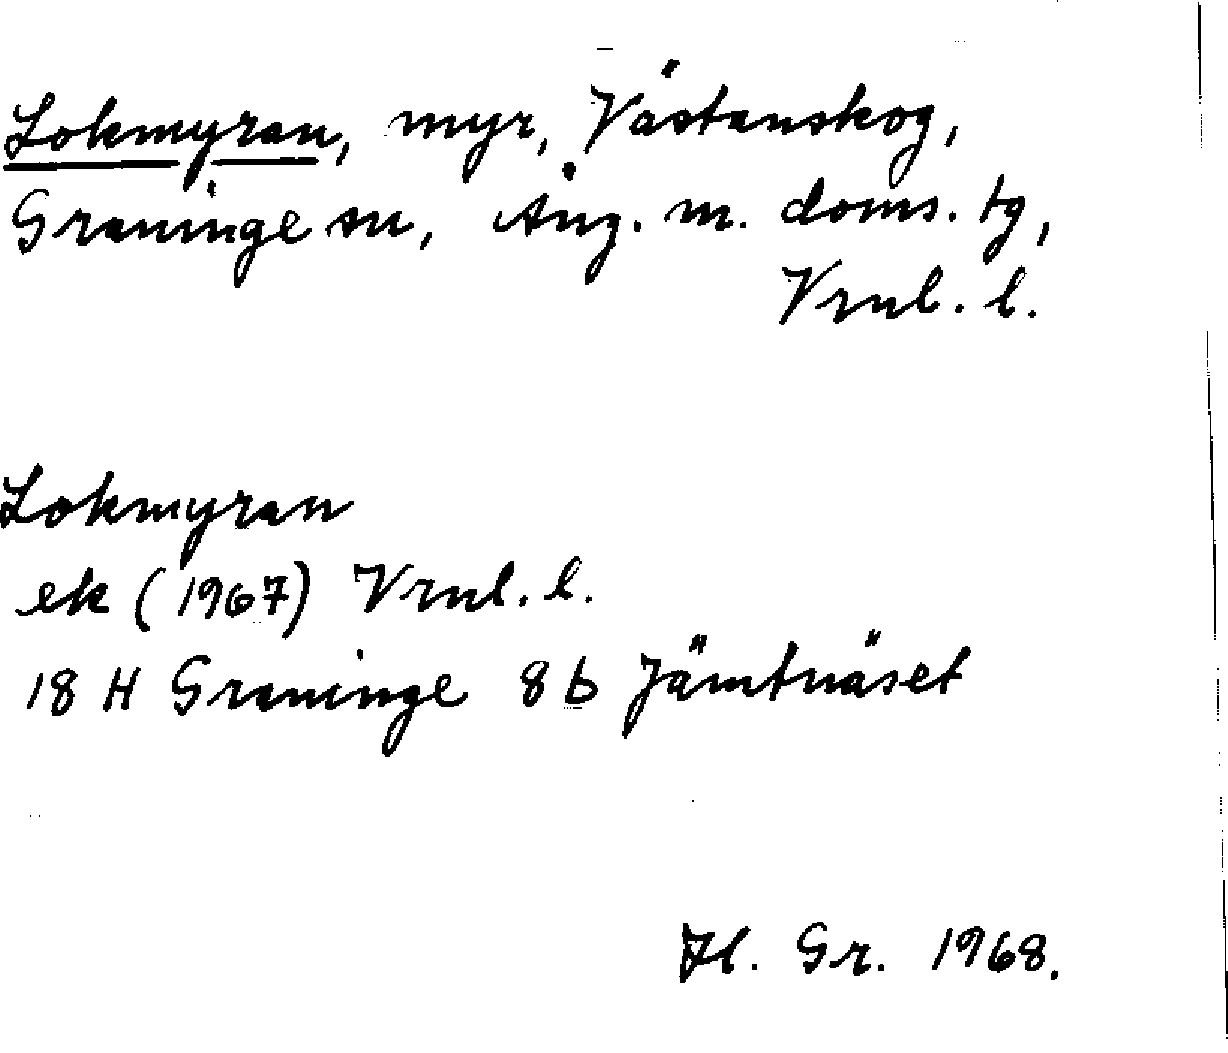 Lokmyran, myr, Västanskog,
Graninge sn, Ång. m. doms. tg,
Vrnl. l.
Lokmyran
ek (1967) Vrnl. l.
18 H Graninge 8 b Jämtnäset
Gr. 1968.